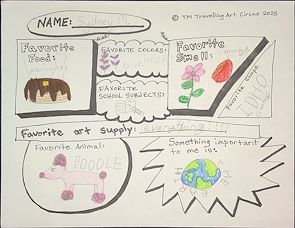 © TM Travelling Art Circus 2025
NAME: Sydney M.
Favorite
Food:
pancakes
FAVORITE COLORS:
lavender
Favorite
Smell:
orange
FAVORITE
SCHOOL SUBJECTS:
Favorite Shape
Favorite art supply: everything!
Favorite Animal:
POODLE
Something important
to me is:
THE EARTH